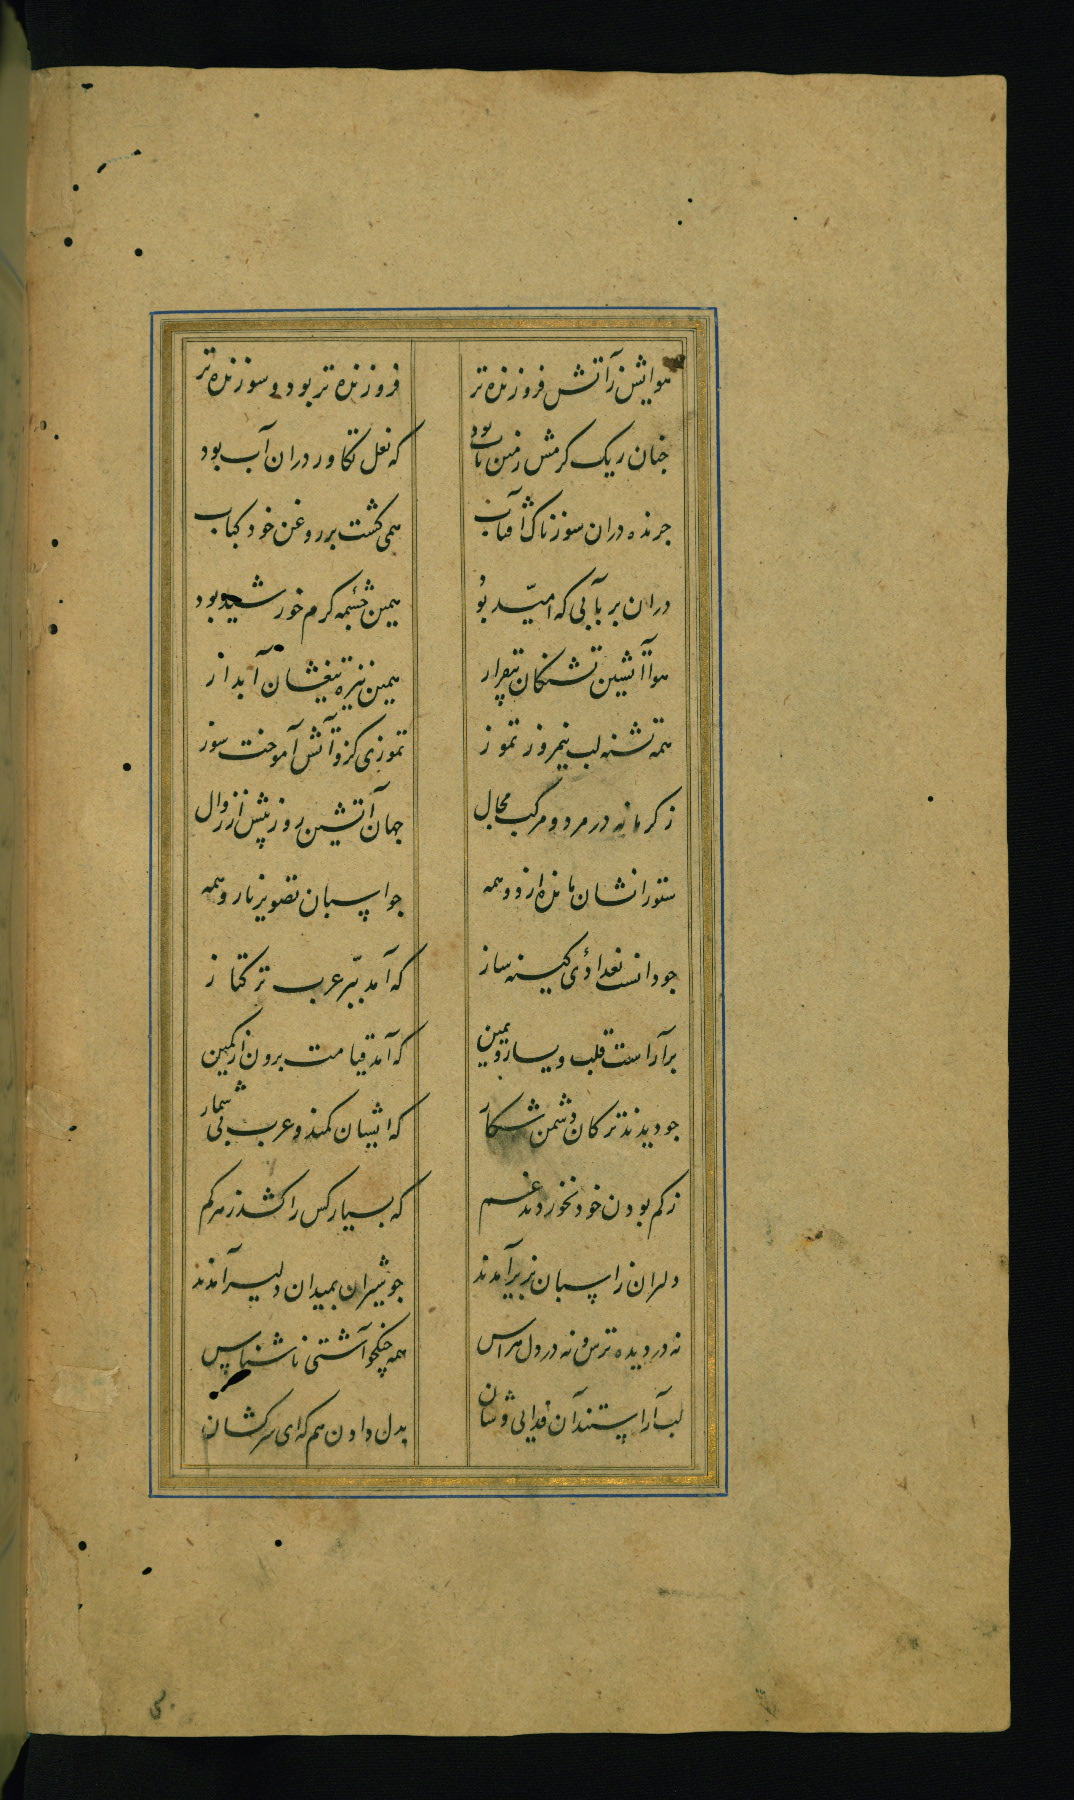 هوایش ز آتش فروزنده تر فروزنده تر بود و سوزنده تر
چنان ریک کرمش زمین تاب بود که نعل تکاور دران آب بود
چرنده دران سوزناک آفتاب همی کشت بر روغن خود کباب
دران بر بآبی که امید بود همین چشمه کرم خورشید بود
هوا آتشین تشنکان بیقرار همین نیزه تیغشان آبدار
همه تشنه لب نیمروز تموز تموزی کزو آتش آموخت سوز
ز کرما نه در مرد و مرکب مجال جهان آتشین روز پیش از زوال
ستورانشان مانده از دو همه چو اسپان تصویر نارو همه
چو دانست بغدادی کینه ساز که آمد ببر عرب ترکتاز
برآراست قلب و یسار و یمین که آمد قیامت برون از کمین
چو دیدند ترکان دشمن شکار که ایشان کمند و عرب بی شمار
ز کم بودن خود نخوردند غم که بسیار کس را کشد زهر کم
دلران ز اسپان بزیر آمدند چو شیران بمیدان دلیر آمدند
نه در دیده ترس و نه در دل هراس همه جنکجو آشتی ناشناس
لب آراستند آن فدایی وشان بدل دادن هم که ای سرکشان